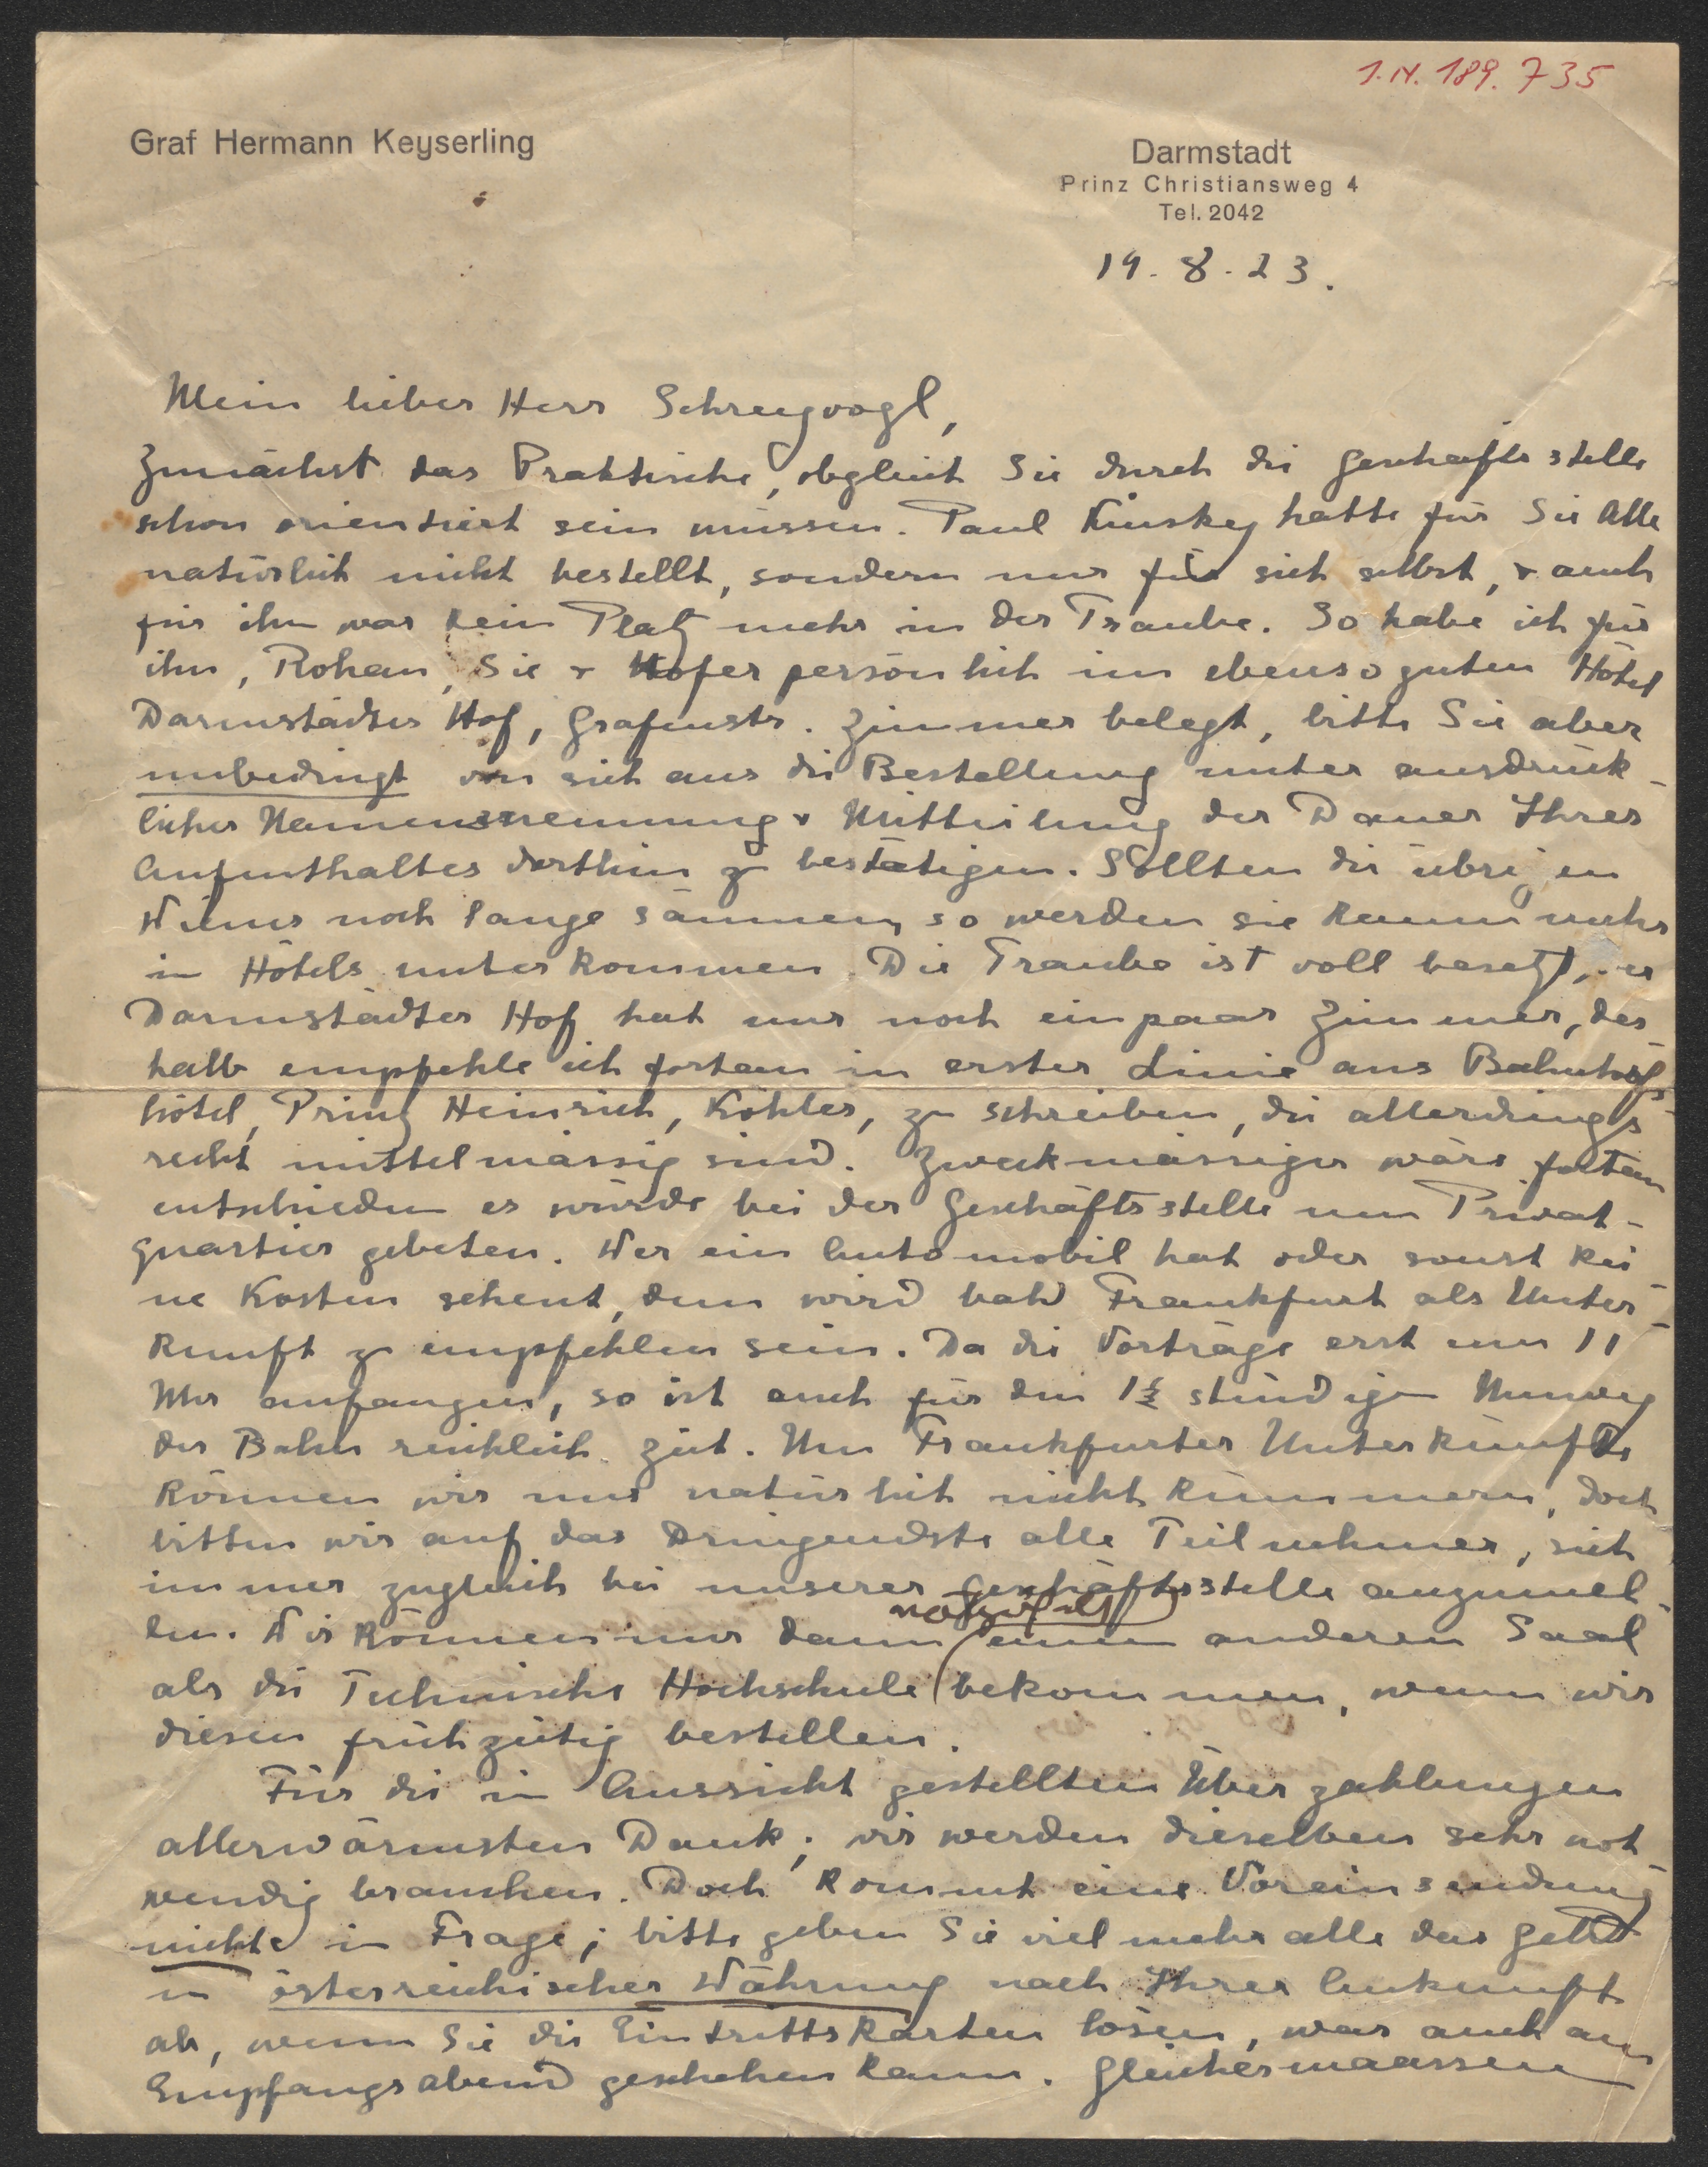 1. N. 189. 735
Graf Hermann Keyserling
Darmstadt
Prinz Christiansweg 4
Tel. 2042
19. 8. 23.
Mein lieber Herr Schreyvogl,
Zunächst das Praktische, obgleich Sie durch die Geschäftsstelle
schon orientiert sein müssen. Paul Kinsky hatte für Sie Alle
natürlich nicht bestellt, sondern nur für sich selbst, & auch
für ihn war kein Platz mehr in der Traube. So habe ich für
ihn, Rohan, Sie & Hofer persönlich im ebenso guten Hôtel
Darmstädter Hof, Grafenstr. Zimmer belegt, bitte Sie aber
unbedingt von sich aus die Bestellung unter ausdrück-
licher Namensnennung & Mitteilung der Dauer Ihres
Aufenthaltes dorthin zu bestätigen. Sollten die übrigen
Wiener noch lange säumen, so werden sie kaum mehr
in Hôtels unterkommen. Die Traube ist voll besetzt, er
Darmstädter Hof hat nur noch ein paar Zimmer, des
halb empfehle ich fortan in erster Linie ans Bahnhofs-
hôtel, Prinz Heinrich, Köhler, zu schreiben, die allerdings
recht mittelmässig sind. Zweckmässiger wäre fortan
entschieden es würde bei der Geschäftsstelle um Privat-
quartier gebeten. Wer ein Automobil hat oder sonst kei-
ne Kosten scheut, dem wird bald Frankfurt als Unter-
kunft zu empfehlen sein. Da die Vorträge erst um 11
Uhr anfangen, so ist auch für den 1½ stündigen Umweg
der Bahn reichlich Zeit. Um Frankfurter Unterkünfte
können wir uns natürlich nicht kümmern, doch
bitten wir auf das Dringendste alle Teilnehmer, sich
immer zugleich bei unserer Geschäftsstelle anzumel-
den. Wir können nur dann einen anderen Saal
als die Technische Hochschule bekommen, wenn wir
diesen frühzeitig bestellen.
Für die in Aussicht gestellten Überzahlungen
allerwärmsten Dank; wir werden dieselben sehr not
wendig brauchen. Doch kommt eine Voreinsendung
nicht in Frage; bitte geben Sie vielmehr alle das Geld
in österreichischer Währung nach Ihrer Ankunft
ab, wenn Sie die Eintrittskarten lösen, was auch am
Empfangsabend geschehen kann. Gleichermaassen